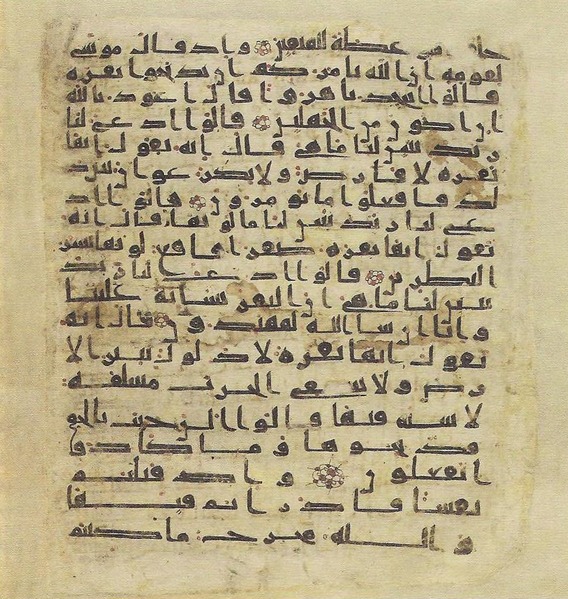 عظة للمتقين واذ قال موسى
لقومه ان الله يامركم ان تذبحوا بقرة
قالوا اتتخذنا هزوا قال اعوذ بالله
ان اكون من الجهلين قالوا ادع لنا
ربك يبين لنا ما هي قال انه يقول انها
بقرة لا فارض ولا بكر عوان بين ذ
لك فافعلوا ما تومرون قالوا اد
ع لنا ربك يبين لنا ما لونها قال انه
يقول انها بقرة صفرا فاقع لونها تسر
النظرين قالوا ادع لنا ربك
يبين لنا ما هي ان البقر تشبه علينا
وانا ان شا الله لمهتدون قال انه
يقول انها بقرة لا ذلول تثير الا
رض ولا تسقي الحرث مسلمة
لا شية فيها قالوا الن جيت بالحق
فذبحوها وما كادوا
يفعلون واذ قتلتم
نفسا فادرتم فيها
والله مخرج ما كنتم